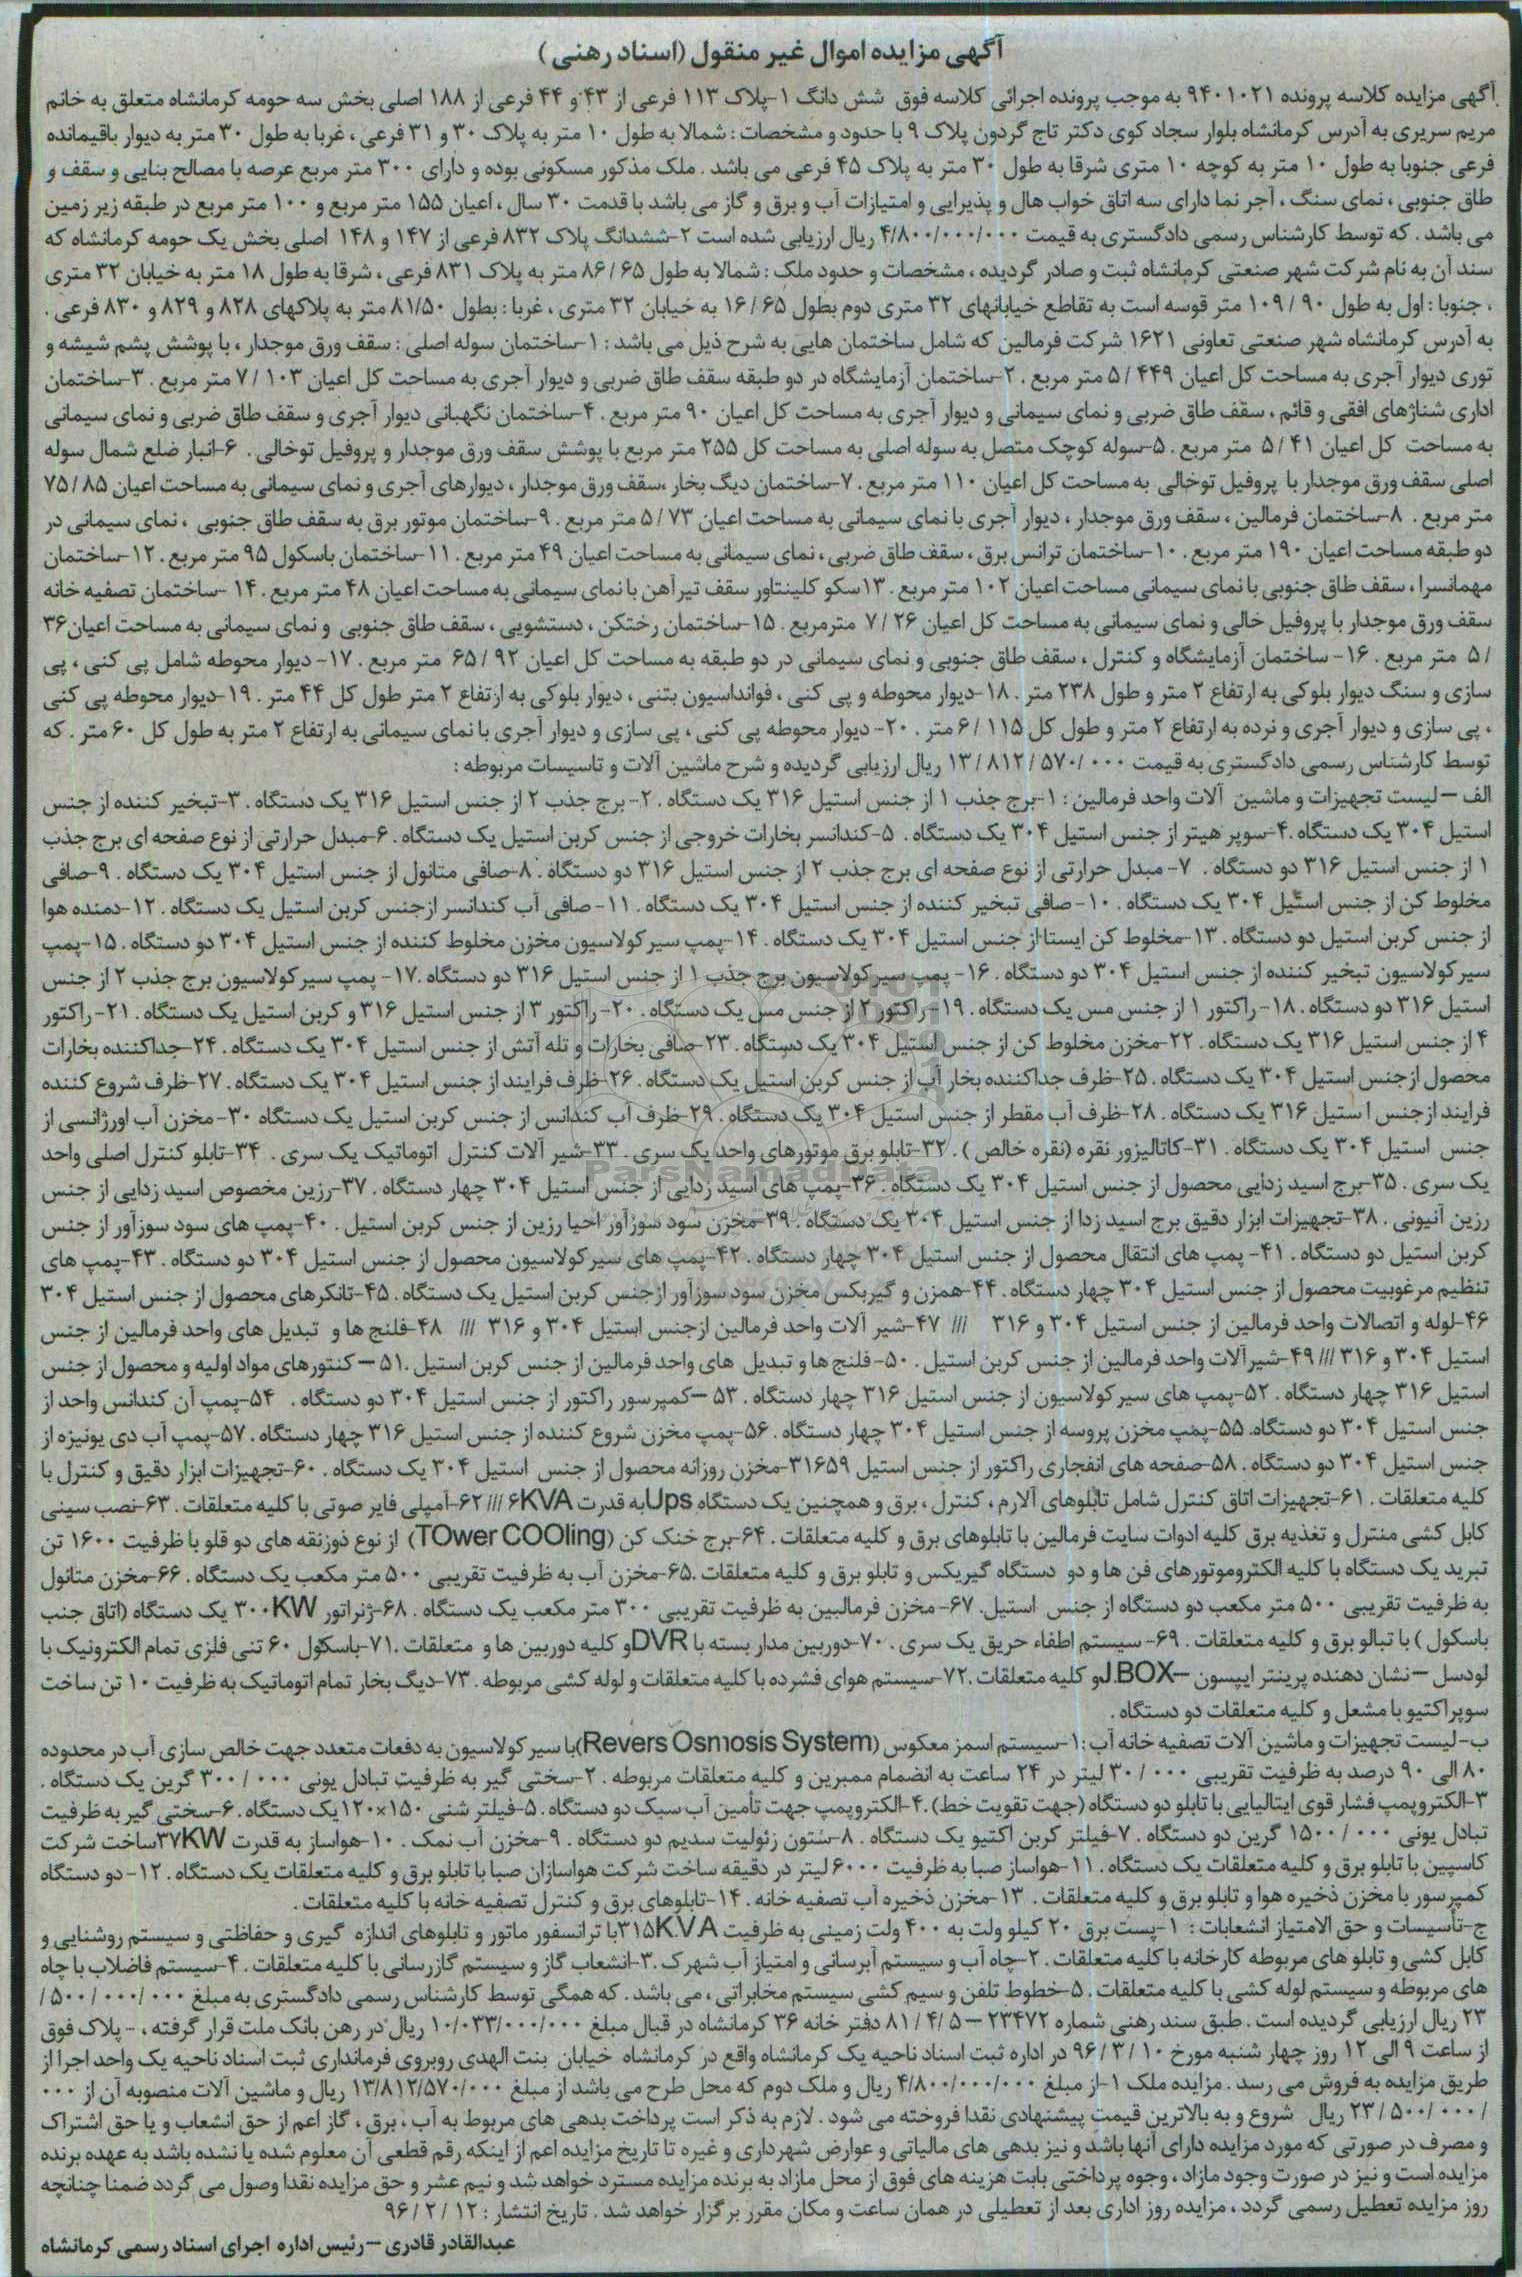 آگهی مزایده اموال غیر منقول (اسناد رهنی )
آگهی مزایده کلاسه پرونده ۹۴۰۱۰۲۱ به موجب پرونده اجرائی کلاسه فوق شش دانگ ۱-پلاک ۱۱۳ فرعی از ۴۳ و ۴۴ فرعی از ۱۸۸ اصلی بخش سه حومه کرمانشاه متعلق به خانم
مریم سریری به آدرس کرمانشاه بلوار سجاد کوی دکتر تاج گردون پلاک ۹ با حدود و مشخصات : شمالا به طول ۱۰ متر به پلاک ۳۰ و ۳۱ فرعی ، غربا به طول ۳۰ متر به دیوار باقیمانده
فرعی جنوبا به طول ۱۰ متر به کوچه ۱۰ متری شرقا به طول ۳۰ متر به پلاک ۴۵ فرعی می باشد . ملک مذکور مسکونی بوده و دارای ۳۰۰ متر مربع عرصه با مصالح بنایی و سقف و
طاق جنوبی ، نمای سنگ ، آجر نما دارای سه اتاق خواب هال و پذیرایی و امتیازات آب و برق و گاز می باشد با قدمت ۳۰ سال ، اعیان ۱۵۵ متر مربع و ۱۰۰ متر مربع در طبقه زیر زمین
می باشد . که توسط کارشناس رسمی دادگستری به قیمت ۴/۸۰۰/۰۰۰/۰۰۰ ریال ارزیابی شده است ۲-ششدانگ پلاک ۸۳۲ فرعی از ۱۴۷ و ۱۴۸ اصلی بخش یک حومه کرمانشاه که
سند آن به نام شرکت شهر صنعتی کرمانشاه ثبت و صادر گردیده ، مشخصات و حدود ملک : شمالا به طول ۸۶/۶۵ متر به پلاک ۸۳۱ فرعی ، شرقا به طول ۱۸ متر به خیابان ۳۲ متری
، جنوبا : اول به طول ۱۰۹/۹۰ متر قوسه است به تقاطع خیابانهای ۳۲ متری دوم بطول ۱۶/۶۵ به خیابان ۳۲ متری ، غربا : بطول ۸۱/۵۰ متر به پلاکهای ۸۲۸ و ۸۲۹ و ۸۳۰ فرعی .
به آدرس کرمانشاه شهر صنعتی تعاونی ۱۶۲۱ شرکت فرمالین که شامل ساختمان هایی به شرح ذیل می باشد : ۱-ساختمان سوله اصلی : سقف ورق موجدار ، با پوشش پشم شیشه و
توری دیوار آجری به مساحت کل اعیان ۵/۴۴۹ متر مربع . ۲-ساختمان آزمایشگاه در دو طبقه سقف طاق ضربی و دیوار آجری به مساحت کل اعیان ۷/۱۰۳ متر مربع . ۳-ساختمان
اداری شناژهای افقی و قائم ، سقف طاق ضربی و نمای سیمانی و دیوار آجری به مساحت کل اعیان ۹۰ متر مربع . ۴-ساختمان نگهبانی دیوار آجری و سقف طاق ضربی و نمای سیمانی
به مساحت کل اعیان ۵/۴۱ متر مربع . ۵-سوله کوچک متصل به سوله اصلی به مساحت کل ۲۵۵ متر مربع با پوشش سقف ورق موجدار و پروفیل توخالی . ۶-انبار ضلع شمال سوله
اصلی سقف ورق موجدار با پروفیل توخالی به مساحت کل اعیان ۱۱۰ متر مربع . ۷-ساختمان دیگ بخار ،سقف ورق موجدار ، دیوارهای آجری و نمای سیمانی به مساحت اعیان ۷۵/۸۵
متر مربع . ۸-ساختمان فرمالین ، سقف ورق موجدار ، دیوار آجری با نمای سیمانی به مساحت اعیان ۵/۷۳ متر مربع . ۹-ساختمان موتور برق به سقف طاق جنوبی ، نمای سیمانی در
دو طبقه مساحت اعیان ۱۹۰ متر مربع . ۱۰-ساختمان ترانس برق ، سقف طاق ضربی ، نمای سیمانی به مساحت اعیان ۴۹ متر مربع . ۱۱-ساختمان باسکول ۹۵ متر مربع . ۱۲-ساختمان
مهمانسرا ، سقف طاق جنوبی با نمای سیمانی مساحت اعیان ۱۰۲ متر مربع . ۱۳سکو کلینتاور سقف تیرآهن با نمای سیمانی به مساحت اعیان ۴۸ متر مربع . ۱۴ -ساختمان تصفیه خانه
سقف ورق موجدار با پروفیل خالی و نمای سیمانی به مساحت کل اعیان ۷/۲۶ مترمربع . ۱۵-ساختمان رختکن ، دستشویی ، سقف طاق جنوبی و نمای سیمانی به مساحت اعیان۳۶
/۵ متر مربع . ۱۶- ساختمان آزمایشگاه و کنترل ، سقف طاق جنوبی و نمای سیمانی در دو طبقه به مساحت کل اعیان ۶۵/۹۲ متر مربع . ۱۷- دیوار محوطه شامل پی کنی ، پی
سازی و سنگ دیوار بلوکی به ارتفاع ۲ متر و طول ۲۳۸ متر . ۱۸-دیوار محوطه و پی کنی ، فوانداسیون بتنی ، دیوار بلوکی به ارتفاع ۲ متر طول کل ۴۴ متر . ۱۹-دیوار محوطه پی کنی
، پی سازی و دیوار آجری و نرده به ارتفاع ۲ متر و طول کل ۶/۱۱۵ متر . ۲۰- دیوار محوطه پی کنی ، پی سازی و دیوار آجری با نمای سیمانی به ارتفاع ۲ متر به طول کل ۶۰ متر . که
توسط کارشناس رسمی دادگستری به قیمت ۱۳/۸۱۲/۵۷۰/۰۰۰ ریال ارزیابی گردیده و شرح ماشین آلات و تاسیسات مربوطه :
الف –لیست تجهیزات و ماشین آلات واحد فرمالین : ۱-برج جذب ۱ از جنس استیل ۳۱۶ یک دستگاه . ۲- برج جذب ۲ از جنس استیل ۳۱۶ یک دستگاه . ۳-تبخیر کننده از جنس
استیل ۳۰۴ یک دستگاه .۴-سوپر هیتر از جنس استیل ۳۰۴ یک دستگاه . ۵-کندانسر بخارات خروجی از جنس کربن استیل یک دستگاه . ۶-مبدل حرارتی از نوع صفحه ای برج جذب
۱ از جنس استیل ۳۱۶ دو دستگاه . ۷- مبدل حرارتی از نوع صفحه ای برج جذب ۲ از جنس استیل ۳۱۶ دو دستگاه . ۸-صافی متانول از جنس استیل ۳۰۴ یک دستگاه . ۹-صافی
مخلوط کن از جنس استیل ۳۰۴ یک دستگاه . ۱۰- صافی تبخیر کننده از جنس استیل ۳۰۴ یک دستگاه . ۱۱- صافی آب کندانسر ازجنس کربن استیل یک دستگاه . ۱۲-دمنده هوا
از جنس کربن استیل دو دستگاه . ۱۳-مخلوط کن ایستا از جنس استیل ۳۰۴ یک دستگاه . ۱۴-پمپ سیرکولاسیون مخزن مخلوط کننده از جنس استیل ۳۰۴ دو دستگاه . ۱۵-پمپ
سیرکولاسیون تبخیر کننده از جنس استیل ۳۰۴ دو دستگاه . ۱۶- پمپ سیرکولاسیون برج جذب ۱ از جنس استیل ۳۱۶ دو دستگاه .۱۷- پمپ سیرکولاسیون برج جذب ۲ از جنس
استیل ۳۱۶ دو دستگاه . ۱۸- راکتور ۱ از جنس مس یک دستگاه . ۱۹- راکتور ۲ از جنس مس یک دستگاه . ۲۰- راکتور ۳ از جنس استیل ۳۱۶ و کربن استیل یک دستگاه . ۲۱- راکتور
۴ از جنس استیل ۳۱۶ یک دستگاه . ۲۲-مخزن مخلوط کن از جنس استیل ۳۰۴ یک دستگاه . ۲۳-صافی بخارات و تله آتش از جنس استیل ۳۰۴ یک دستگاه . ۲۴-جداکننده بخارات
محصول ازجنس استیل ۳۰۴ یک دستگاه . ۲۵-ظرف جداکننده بخار آب از جنس کربن استیل یک دستگاه . ۲۶-ظرف فرایند از جنس استیل ۳۰۴ یک دستگاه . ۲۷-ظرف شروع کننده
فرایند ازجنس ا ستیل ۳۱۶ یک دستگاه . ۲۸-ظرف آب مقطر از جنس استیل ۳۰۴ یک دستگاه . ۲۹-ظرف آب کندانس از جنس کربن استیل یک دستگاه ۳۰- مخزن آب اورژانسی از
جنس استیل ۳۰۴ یک دستگاه . ۳۱-کاتالیزور نقره (نقره خالص ) .۳۲-تابلو برق موتورهای واحد یک سری . ۳۳-شیر آلات کنترل اتوماتیک یک سری . ۳۴-تابلو کنترل اصلی واحد
یک سری . ۳۵-برج اسید زدایی محصول از جنس استیل ۳۰۴ یک دستگاه . ۳۶-پمپ های اسید زدایی از جنس استیل ۳۰۴ چهار دستگاه . ۳۷-رزین مخصوص اسید زدایی از جنس
رزین آنیونی . ۳۸-تجهیزات ابزار دقیق برج اسید زدا از جنس استیل ۳۰۴ یک دستگاه . ۳۹-مخزن سود سوزآور احیا رزین از جنس کربن استیل . ۴۰-پمپ های سود سوزآور از جنس
کربن استیل دو دستگاه . ۴۱- پمپ های انتقال محصول از جنس استیل ۳۰۴ چهار دستگاه . ۴۲-پمپ های سیرکولاسیون محصول از جنس استیل ۳۰۴ دو دستگاه . ۴۳-پمپ های
تنظیم مرغوبیت محصول از جنس استیل ۳۰۴ چهار دستگاه . ۴۴-همزن و گیربکس مخزن سود سوزآور ازجنس کربن استیل یک دستگاه . ۴۵-تانکرهای محصول از جنس استیل ۳۰۴
۴۶-لوله و اتصالات واحد فرمالین از جنس استیل ۳۰۴ و ۳۱۶ /// ۴۷-شیر آلات واحد فرمالین ازجنس استیل ۳۰۴ و ۳۱۶ /// ۴۸-فلنج ها و تبدیل های واحد فرمالین از جنس
استیل ۳۰۴ و ۳۱۶ /// ۴۹-شیرآلات واحد فرمالین از جنس کربن استیل . ۵۰- فلنج ها و تبدیل های واحد فرمالین از جنس کربن استیل .۵۱ – کنتورهای مواد اولیه و محصول از جنس
استیل ۳۱۶ چهار دستگاه . ۵۲-پمپ های سیرکولاسیون از جنس استیل ۳۱۶ چهار دستگاه . ۵۳ –کمپرسور راکتور از جنس استیل ۳۰۴ دو دستگاه . ۵۴-پمپ آن کندانس واحد از
جنس استیل ۳۰۴ دو دستگاه. ۵۵-پمپ مخزن پروسه از جنس استیل ۳۰۴ چهار دستگاه . ۵۶-پمپ مخزن شروع کننده از جنس استیل ۳۱۶ چهار دستگاه . ۵۷-پمپ آب دی یونیزه از
جنس استیل ۳۰۴ دو دستگاه . ۵۸-صفحه های انفجاری راکتور از جنس استیل ۳۱۶۵۹-مخزن روزانه محصول از جنس استیل ۳۰۴ یک دستگاه . ۶۰-تجهیزات ابزار دقیق و کنترل با
کلیه متعلقات . ۶۱-تجهیزات اتاق کنترل شامل تابلوهای آلارم ، کنترل ، برق و همچنین یک دستگاه Upsبه قدرت ۶KVA /// ۶۲-آمپلی فایر صوتی با کلیه متعلقات . ۶۳-نصب سینی
کابل کشی منترل و تغذیه برق کلیه ادوات سایت فرمالین با تابلوهای برق و کلیه متعلقات . ۶۴-برج خنک کن (TOwer COOling) از نوع ذوزنقه های دو قلو با ظرفیت ۱۶۰۰ تن
تبرید یک دستگاه با کلیه الکتروموتورهای فن ها و دو دستگاه گیربکس و تابلو برق و کلیه متعلقات .۶۵-مخزن آب به ظرفیت تقریبی ۵۰۰ متر مکعب یک دستگاه . ۶۶-مخزن متانول
به ظرفیت تقریبی ۵۰۰ متر مکعب دو دستگاه از جنس استیل. ۶۷- مخزن فرمالبین به ظرفیت تقریبی ۳۰۰ متر مکعب یک دستگاه . ۶۸-ژنراتور ۳۰۰KW یک دستگاه (اتاق جنب
باسکول ) با تبالو برق و کلیه متعلقات . ۶۹- سیستم اطفاء حریق یک سری . ۷۰-دوربین مدار بسته با DVRو کلیه دوربین ها و متعلقات .۷۱-باسکول ۶۰ تنی فلزی تمام الکترونیک با
لودسل –نشان دهنده پرینتر اپپسون –J.BOXو کلیه متعلقات .۷۲-سیستم هوای فشرده با کلیه متعلقات و لوله کشی مربوطه . ۷۳-دیگ بخار تمام اتوماتیک به ظرفیت ۱۰ تن ساخت
سوپراکتیو با مشعل و کلیه متعلقات دو دستگاه .
ب-لیست تجهیزات و ماشین آلات تصفیه خانه آب :۱-سیستم اسمز معکوس (Revers Osmosis System)با سیرکولاسیون به دفعات متعدد جهت خالص سازی آب در محدوده
۸۰ الی ۹۰ درصد به ظرفیت تقریبی ۳۰/۰۰۰ لیتر در ۲۴ ساعت به انضمام ممبرین و کلیه متعلقات مربوطه . ۲-سختی گیر به ظرفیت تبادل یونی ۳۰۰/۰۰۰ گرین یک دستگاه .
۳-الکتروپمپ فشار قوی ایتالیایی با تابلو دو دستگاه (جهت تقویت خط) .۴-الکتروپمپ جهت تأمین آب سبک دو دستگاه . ۵-فیلتر شنی ۱۵۰×۱۲۰ یک دستگاه . ۶-سختی گیر به ظرفیت
تبادل یونی ۱۵۰۰/۰۰۰ گرین دو دستگاه . ۷-فیلتر کربن اکتیو یک دستگاه . ۸-ستون زئولیت سدیم دو دستگاه . ۹-مخزن آب نمک . ۱۰-هواساز به قدرت ۳۷KWساخت شرکت
کاسپین با تابلو برق و کلیه متعلقات یک دستگاه . ۱۱-هواساز صبا به ظرفیت ۶۰۰۰ لیتر در دقیقه ساخت شرکت هواسازان صبا با تابلو برق و کلیه متعلقات یک دستگاه . ۱۲- دو دستگاه
کمپرسور با مخزن ذخیره هوا و تابلو برق و کلیه متعلقات . ۱۳-مخزن ذخیره آب تصفیه خانه . ۱۴-تابلوهای برق و کنترل تصفیه خانه با کلیه متعلقات .
ج-تأسیسات و حق الامتیاز انشعابات : ۱-پست برق ۲۰ کیلو ولت به ۴۰۰ ولت زمینی به ظرفیت ۳۱۵K.V.Aبا ترانسفور ماتور و تابلوهای اندازه گیری و حفاظتی و سیستم روشنایی و
کابل کشی و تابلو های مربوطه کارخانه با کلیه متعلقات . ۲-چاه آب و سیستم آبرسانی و امتیاز آب شهرک .۳-انشعاب گاز و سیستم گازرسانی با کلیه متعلقات . ۴-سیستم فاضلاب با چاه
های مربوطه و سیستم لوله کشی با کلیه متعلقات . ۵-خطوط تلفن و سیم کشی سیستم مخابراتی ، می باشد . که همگی توسط کارشناس رسمی دادگستری به مبلغ ۵۰۰/۰۰۰/۰۰۰/
۲۳ ریال ارزیابی گردیده است . طبق سند رهنی شماره ۲۳۴۷۲ – ۸۱/۴/۵ دفتر خانه ۳۶ کرمانشاه در قبال مبلغ ۱۰/۰۳۳/۰۰۰/۰۰۰ ریال در رهن بانک ملت قرار گرفته ، - پلاک فوق
از ساعت ۹ الی ۱۲ روز چهار شنبه مورخ ۹۶/۳/۱۰ در اداره ثبت اسناد ناحیه یک کرمانشاه واقع در کرمانشاه خیابان بنت الهدی روبروی فرمانداری ثبت اسناد ناحیه یک واحد اجرا از
طریق مزایده به فروش می رسد . مزایده ملک ۱-از مبلغ ۴/۸۰۰/۰۰۰/۰۰۰ ریال و ملک دوم که محل طرح می باشد از مبلغ ۱۳/۸۱۲/۵۷۰/۰۰۰ ریال و ماشین آلات منصوبه آن از ۰۰۰
/۲۳/۵۰۰/۰۰۰ ریال شروع و به بالاترین قیمت پیشنهادی نقدا فروخته می شود . لازم به ذکر است پرداخت بدهی های مربوط به آب ، برق ، گاز اعم از حق انشعاب و یا حق اشتراک
و مصرف در صورتی که مورد مزایده دارای آنها باشد و نیز بدهی های مالیاتی و عوارض شهرداری و غیره تا تاریخ مزایده اعم از اینکه رقم قطعی آن معلوم شده یا نشده باشد به عهده برنده
مزایده است و نیز در صورت وجود مازاد ، وجوه پرداختی بابت هزینه های فوق از محل مازاد به برنده مزایده مسترد خواهد شد و نیم عشر و حق مزایده نقدا وصول می گردد ضمنا چنانچه
روز مزایده تعطیل رسمی گردد ، مزایده روز اداری بعد از تعطیلی در همان ساعت و مکان مقرر برگزار خواهد شد . تاریخ انتشار : ۹۶/۲/۱۲
عبدالقادر قادری –رئیس اداره اجرای اسناد رسمی کرمانشاه
ParsNamadData